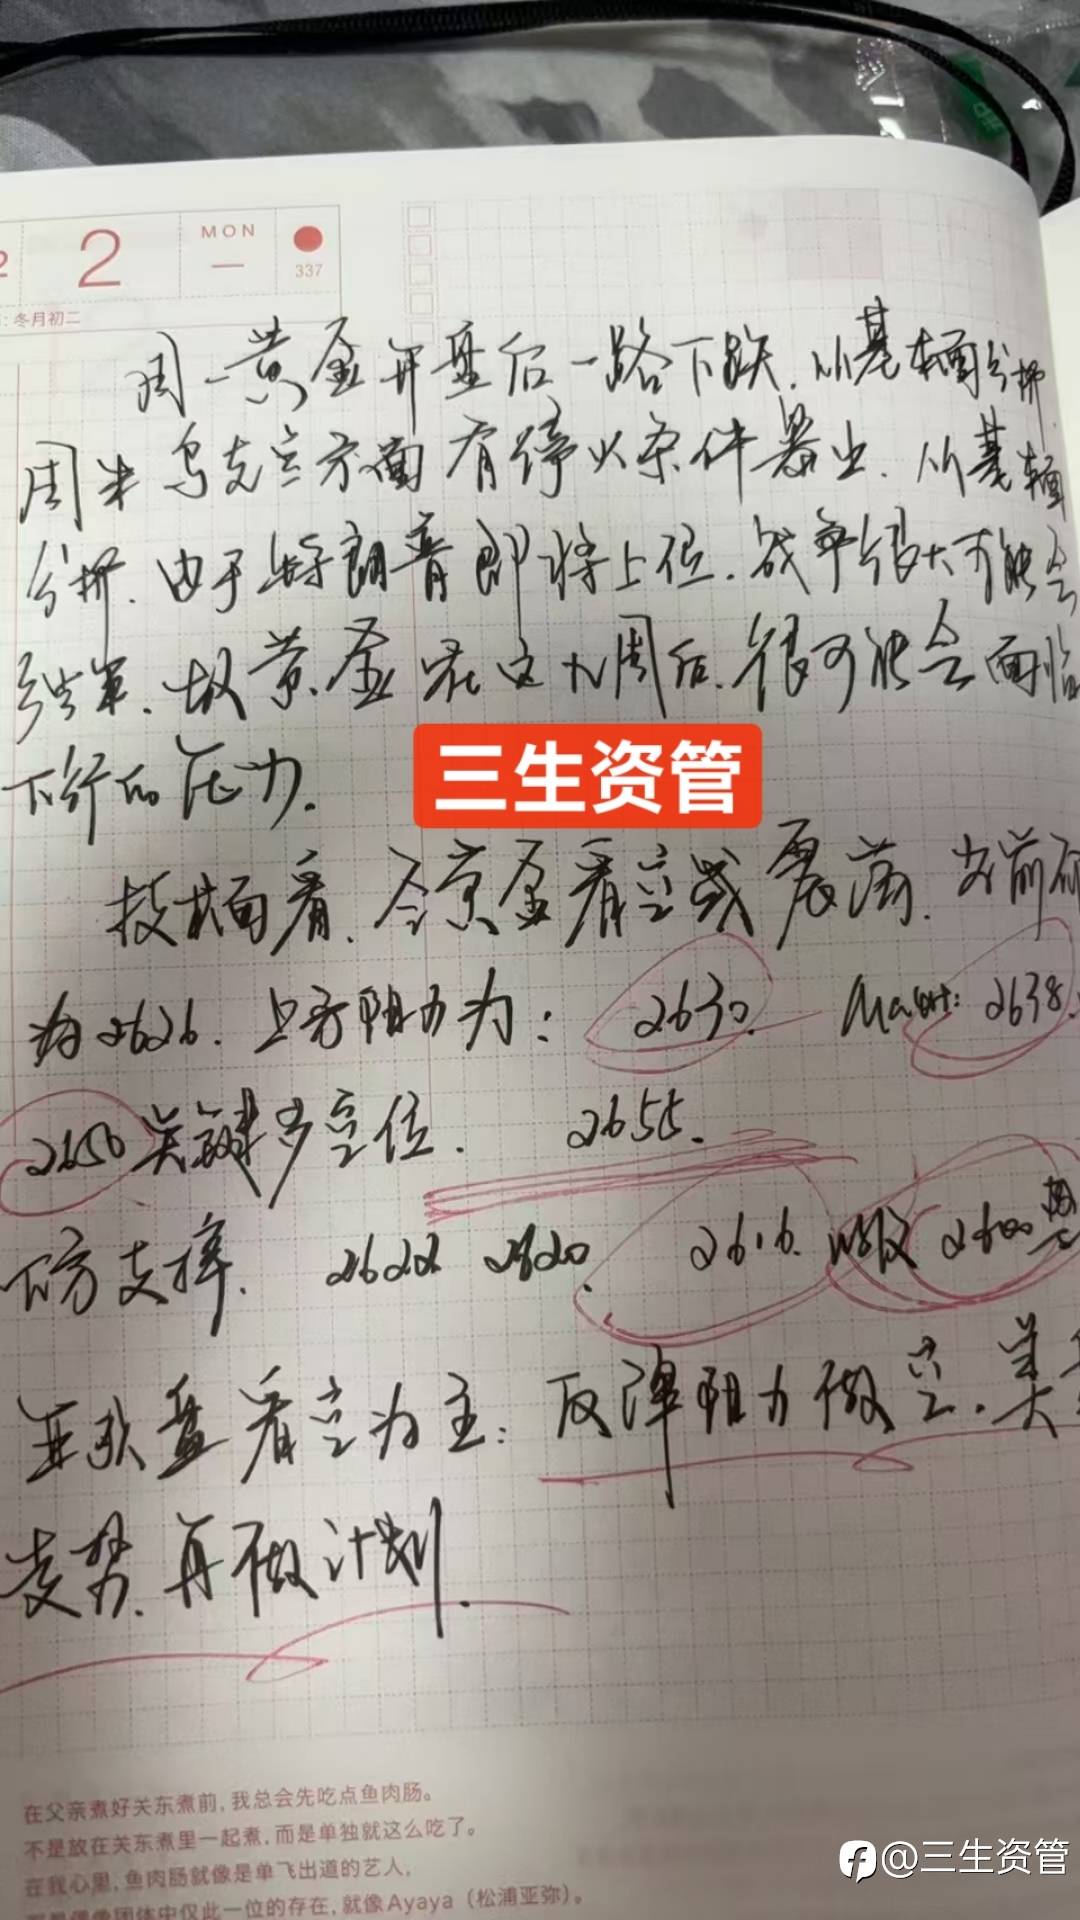 2
2
MON
一
337
冬月初二
周一黄金开盘后一路下跌.从基本面分析
周末乌克兰方面有停火条件曝出.从基本面
分析.由于特朗普即将上位.战争很大可能会
结束.故黄金在这九周后.很可能会面临
下行的压力.
三生资管
技术面看.今黄金看空或震荡.当前
为2626.上方阻力为:2630. 2638.
2650关键多空位.2655.
下方支撑.2622 2620. 2616. 2600
亚欧盘看空为主:反弹阻力做空.美
走势.再做计划.
在父亲煮好关东煮前,我总会先吃点鱼肉肠。
不是放在关东煮里一起煮,而是单独就这么吃了。
在我心里,鱼肉肠就像是单飞出道的艺人,
偶像团体中仅此一位的存在,就像Ayaya(松浦亚弥)。
@三生资管